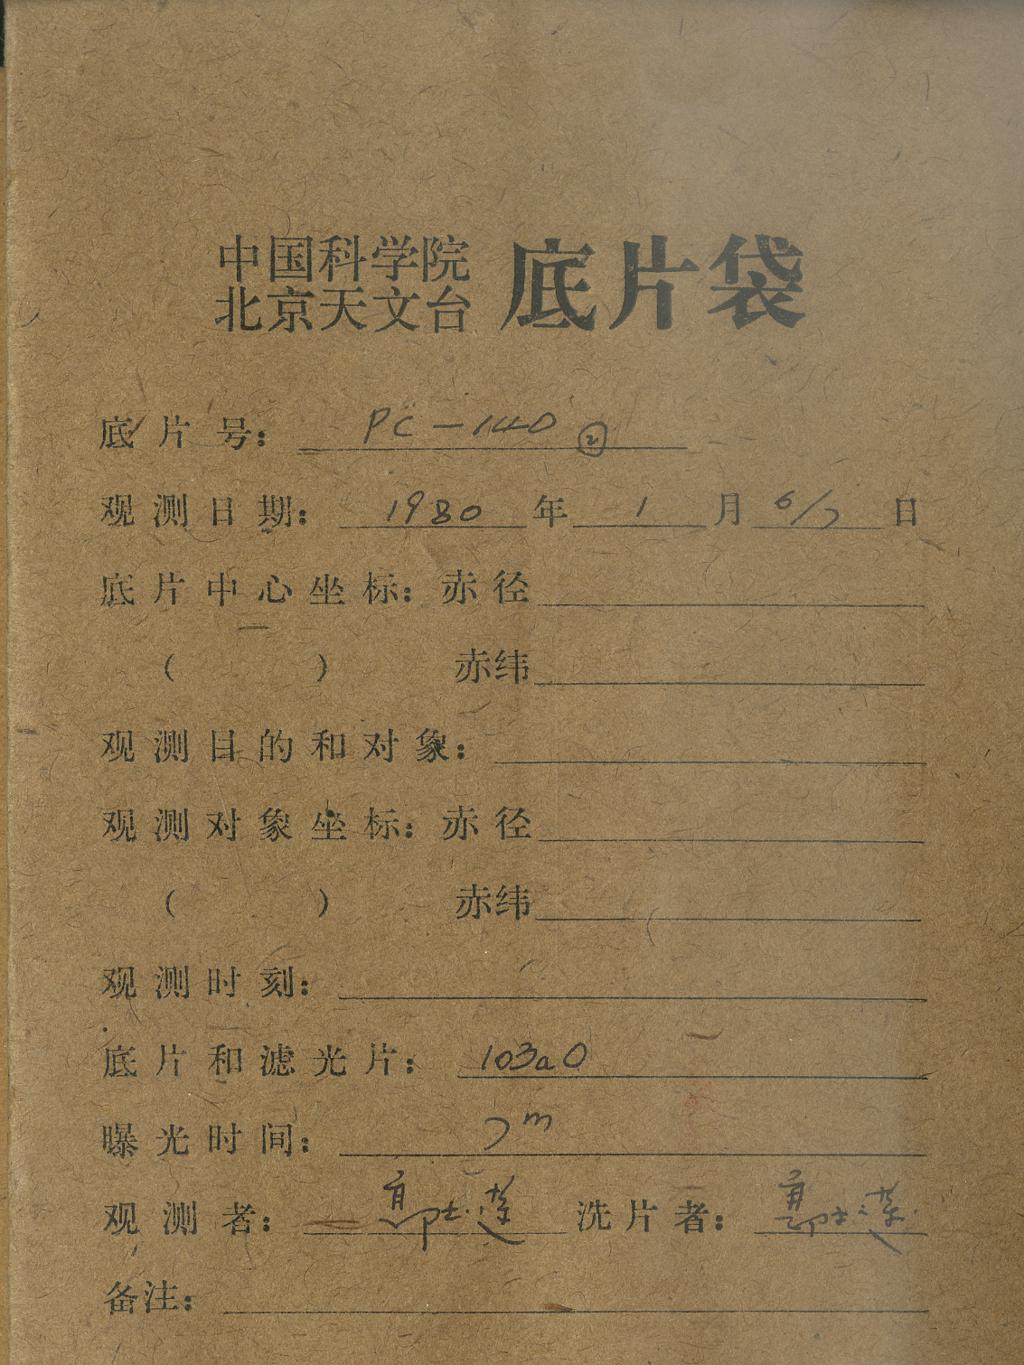 中国科学院
北京天文台 底片袋
底片号: PC-140 ②
观测日期: 1980 年 1 月 6/7 日
底片中心坐标: 赤径
( ) 赤纬
观测目的和对象:
观测对象坐标: 赤径
( ) 赤纬
观测时刻:
底片和滤光片: 103aO
曝光时间: 7m
观测者: 洗片者:
备注: